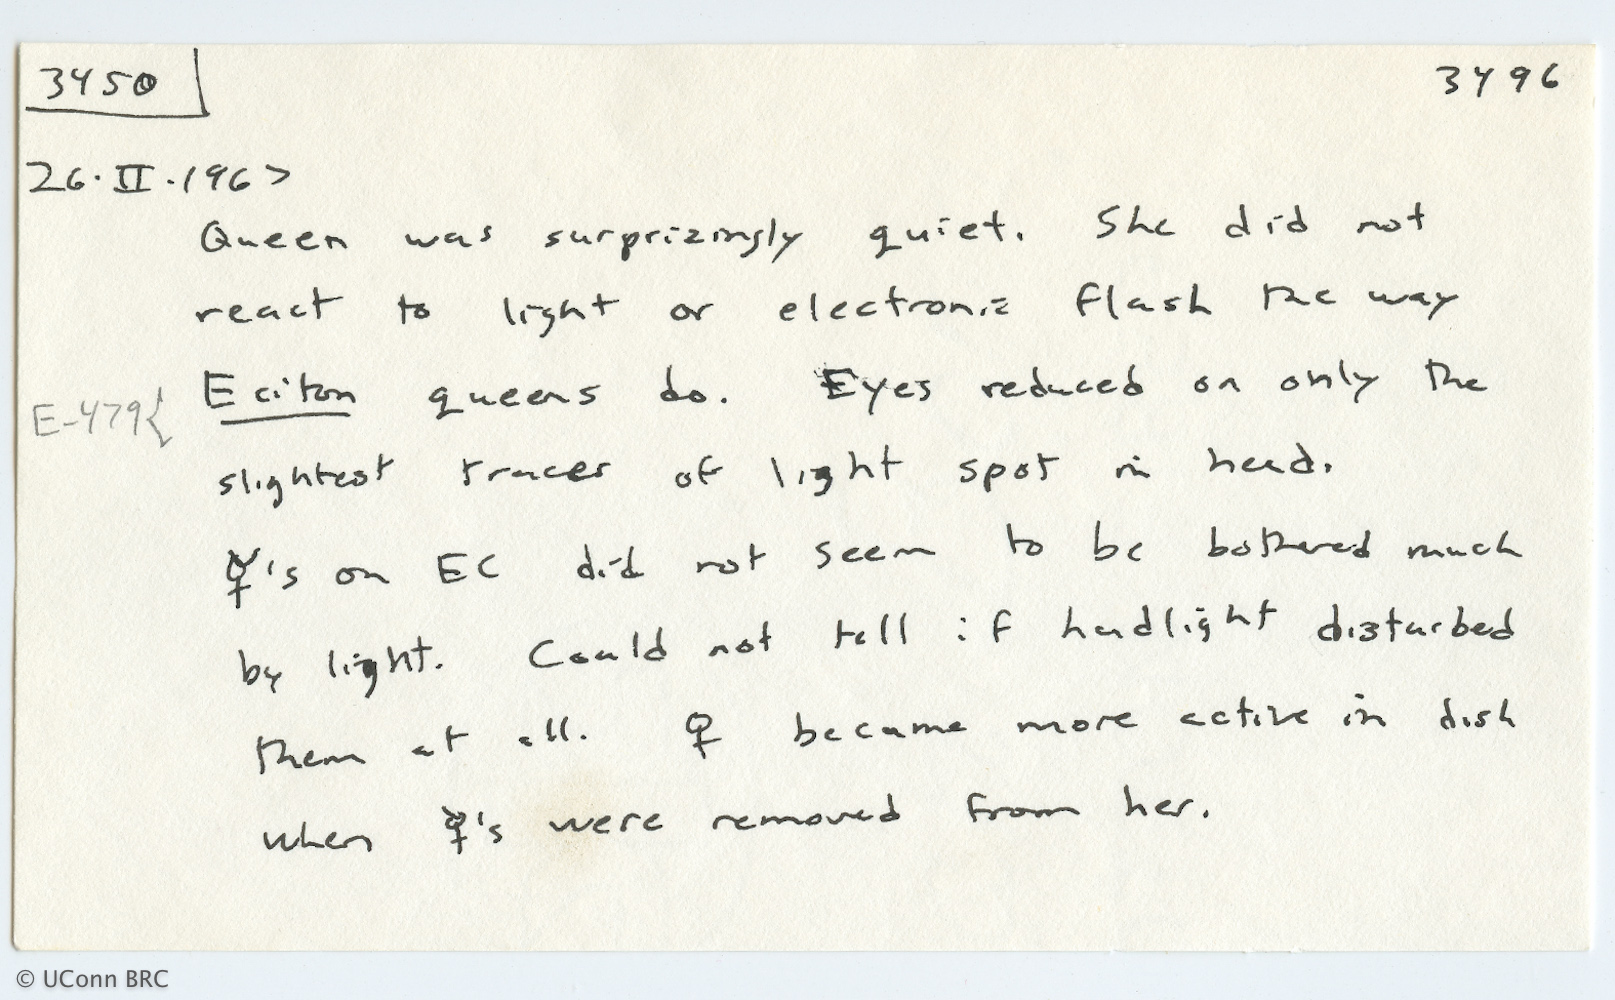 3450
3496
26·II·1967
Queen was surprizingly quiet. She did not
react to light or electronic flash the way
E-479{ Eciton queens do. Eyes reduced on only the
slightest traces of light spot in head.
☿'s on EC did not seem to be bothered much
by light. Could not tell if headlight disturbed
them at all. ♀ became more active in dish
when ☿'s were removed from her.
© UConn BRC